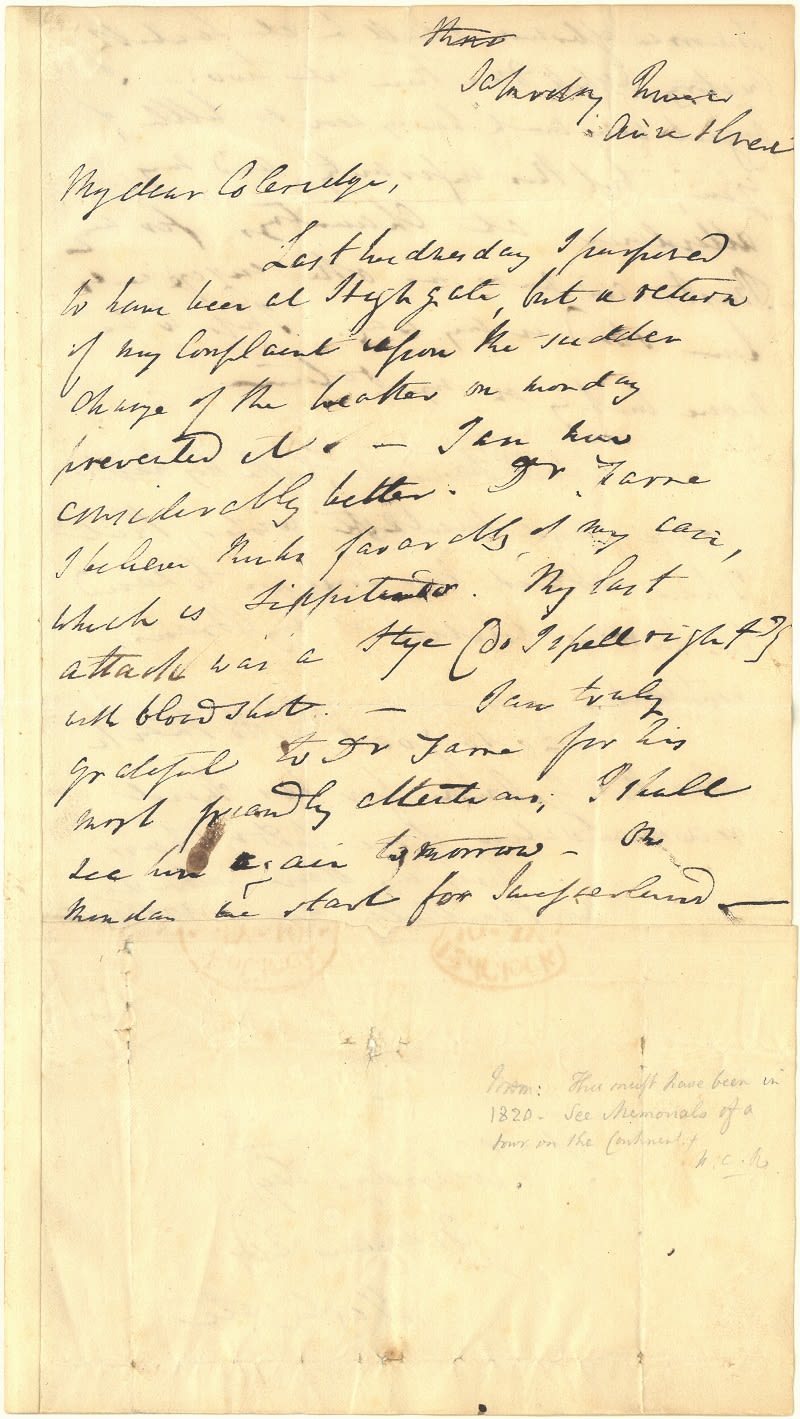 Saturday
My dear Coleridge,
Last Wednesday I purposed
to have been at Highgate, but a return
of my Complaint upon the sudden
change of the weather on monday
prevented it. — I am now
considerably better. Dr. Farre
I believe thinks favorably of my case,
which is Lippitudo. My last
attack was a Stye (do I spell right?)
with bloodshot. — I am truly
grateful to Dr Farre for his
most friendly attentions; I shall
see him again tomorrow – On
Monday we start for Switzerland —
This must have been in
1820 – See Memorials of a
tour on the Continent
H. C. R.